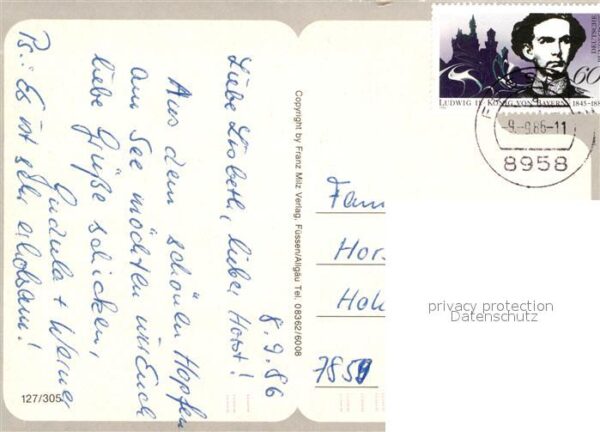 8.9.86
Liebe Lisbeth, lieber Horst!
Aus dem schönen Hopfen
am See möchten wir Euch
liebe Grüße schicken,
Gudula + Werner
Ps.: Es ist sehr erholsam!
127/305
Copyright by Franz Milz Verlag, Füssen/Allgäu Tel. 08362/6008
DEUTSCHE
60
LUDWIG II. KÖNIG VON BAYERN 1845-188
9.-9.86-11
8958
Fam
Hors
7859
privacy protection
Datenschutz